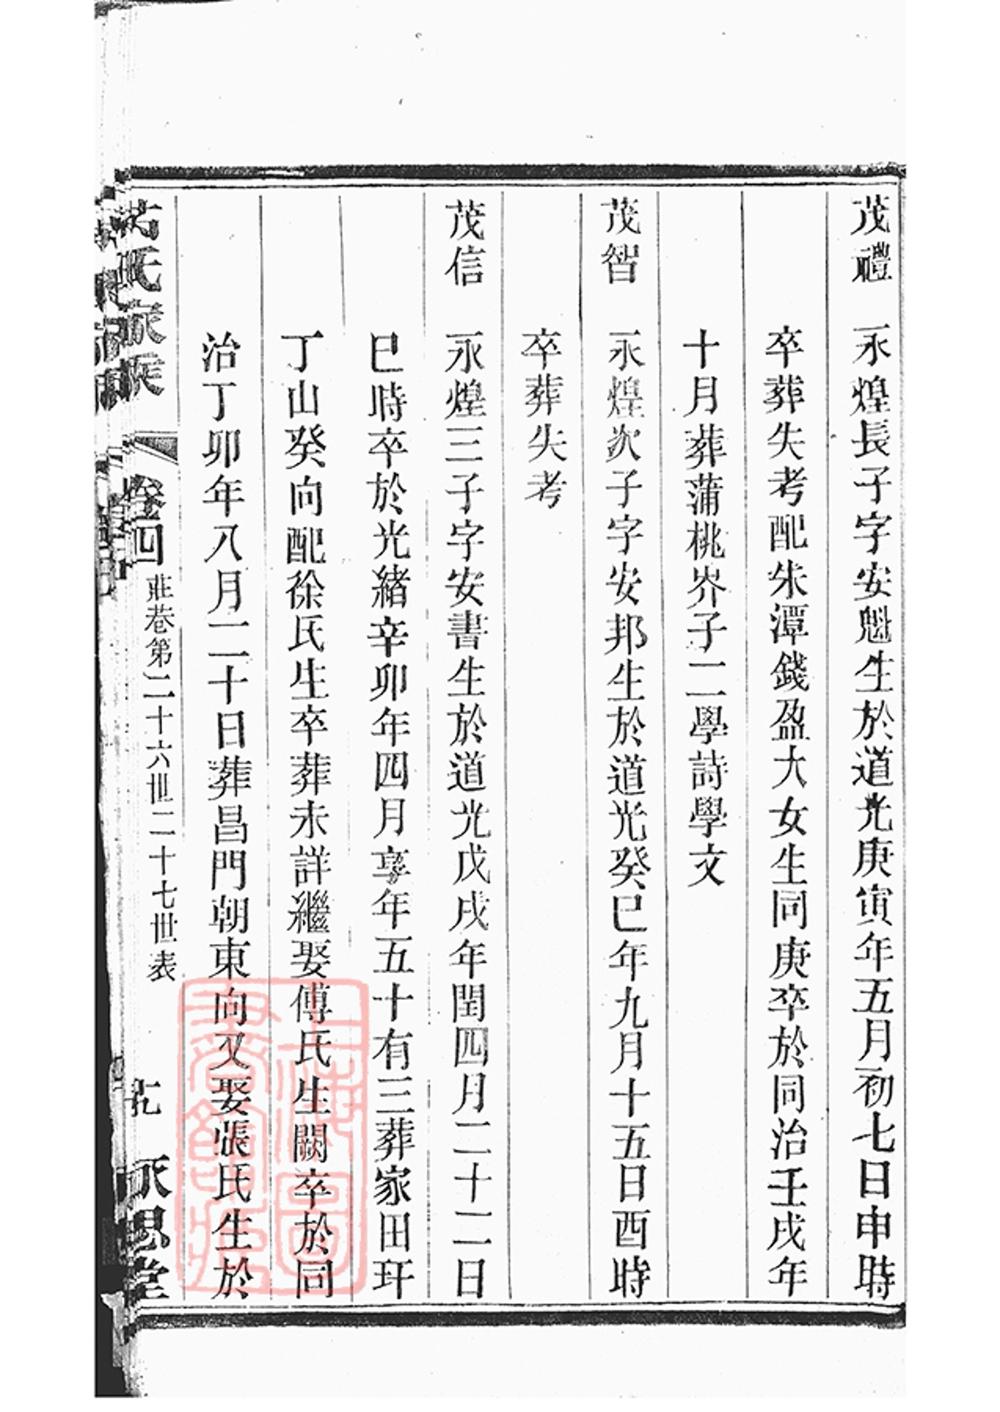 茂禮 永煌長子字安魁生於道光庚寅年五月初七日申時
卒葬失考配朱潭錢盈大女生同庚卒於同治壬戌年
十月葬蒲桃岕子二學詩學文
茂智 永煌次子字安邦生於道光癸巳年九月十五日酉時
卒葬失考
茂信 永煌三子字安書生於道光戊戌年閏四月二十二日
巳時卒於光緒辛卯年四月享年五十有三葬家田玕
丁山癸向配徐氏生卒葬未詳繼娶傅氏生闕卒於同
治丁卯年八月二十日葬昌門朝東向又娶張氏生於
氏家族 卷四 莊巷第二十六世二十七世表 永思堂
上海圖書館藏